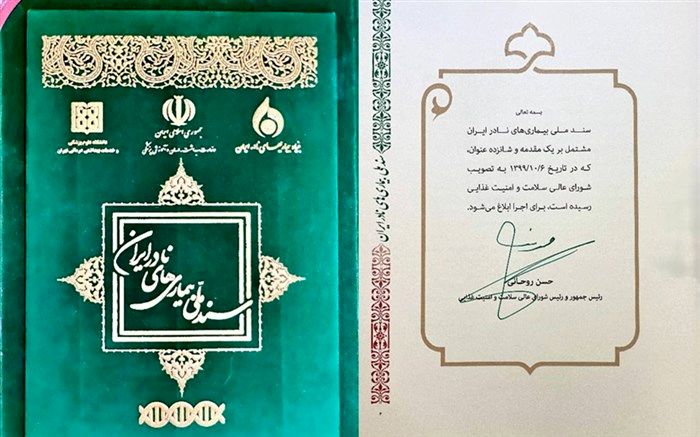 بنیاد بیماریهای نادر ایران
جمهوری اسلامی ایران
وزارت بهداشت، درمان و آموزش پزشکی
دانشگاه علوم پزشکی
و خدمات بهداشتی درمانی تهران
سند ملی بیماری‌های نادر ایران
سند ملی بیماری‌های نادر ایران
بسمه تعالی
سند ملی بیماری‌های نادر ایران
مشتمل بر یک مقدمه و شانزده عنوان،
که در تاریخ ۱۳۹۹/۱۰/۶ به تصویب
شورای عالی سلامت و امنیت غذایی
رسیده است، برای اجرا ابلاغ می‌شود.
حسن روحانی
رئیس جمهور و رئیس شورای عالی سلامت و امنیت غذایی